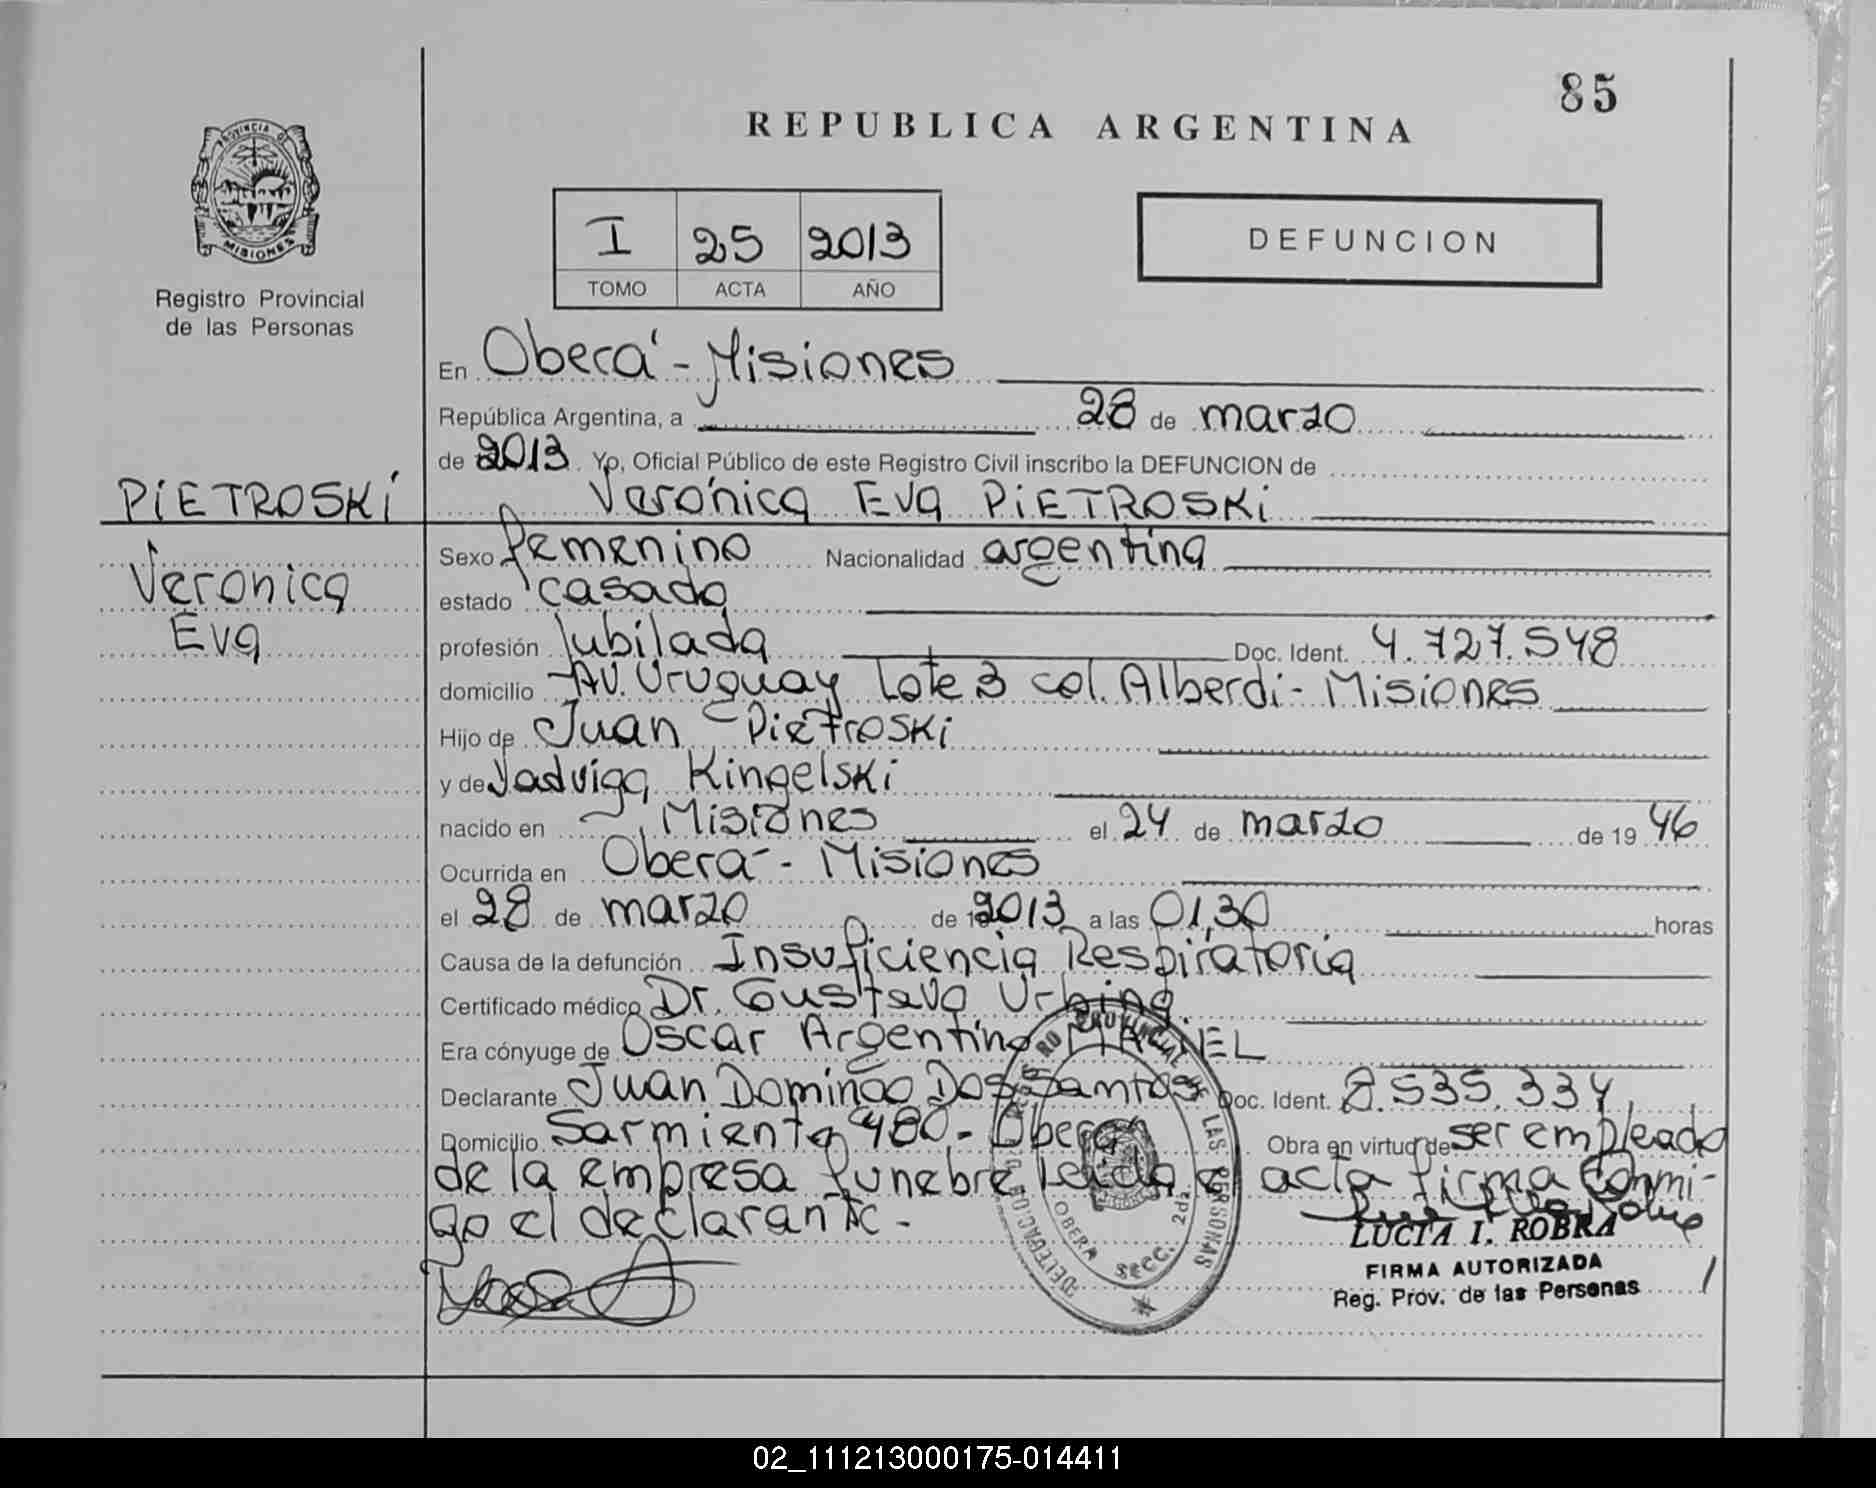 85
REPUBLICA ARGENTINA
PROVINCIA DE
MISIONES
Registro Provincial
de las Personas
I 25 2013
TOMO ACTA AÑO
DEFUNCION
En Oberá - Misiones
República Argentina, a 28 de marzo
de 2013. Yo, Oficial Público de este Registro Civil inscribo la DEFUNCION de
PIETROSKI
Verónica Eva PIETROSKI
Veronica
Eva
Sexo femenino Nacionalidad argentina
estado casada
profesión Jubilada Doc. Ident. 4.727.548
domicilio Av. Uruguay Lote 3 col. Alberdi - Misiones
Hijo de Juan Pietroski
y de Jadviga Kingelski
nacido en Misiones el 24 de marzo de 19 46
Ocurrida en Oberá - Misiones
el 28 de marzo de 2013 a las 01,30 horas
Causa de la defunción Insuficiencia Respiratoria
Certificado médico Dr. Gustavo Urbina.
Era cónyuge de Oscar Argentino
Declarante Juan Domingo Dos Santos Doc. Ident. 8.535.334
Domicilio Sarmiento 480 - Oberá Obra en virtud de ser empleado
de la empresa funebre Leida el acta firma Conmi-
go el declarante -
REGISTRO PROVINCIAL DE LAS PERSONAS
OBERA SECC. 2da.
LUCIA I. ROBRA
FIRMA AUTORIZADA
Reg. Prov. de las Personas
02_111213000175-014411